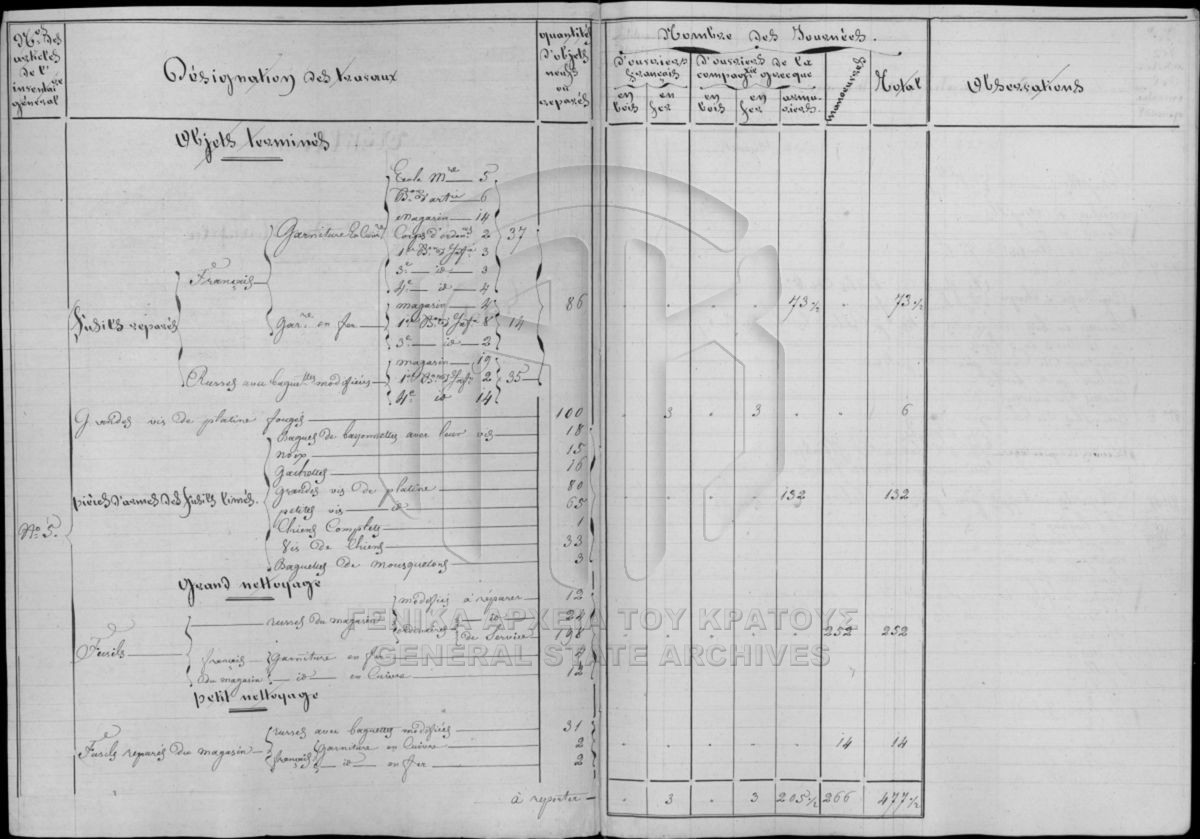 Nos des articles de l'inventaire général
Désignation des travaux
quantités d'objets neufs ou réparés
Nombre des Journées.
d'ouvriers français
d'ouvriers de la compagnie grecque
manoeuvres
Total
Observations
en bois
en fer
en bois
en fer
armuriers.
Objets terminés
Ecole Mre 5
Bon d'artie 6
magasin 14
Garniture En Cuivre Corps d'ordces 2 37
1er Bon d'Infie 3
3e id 3
Français 4e id 4
magasin 4
Fusils réparés 86 . . . . 73 1/2 . 73 1/2
Garre en fer 1er Bon d'Infie 8 14
3e id 2
magasin 19
Russes avec baguettes modifiées 1er Bon d'Infie 2 35
4e id 14
Grandes vis de platine forgés 100 . 3 . 3 . . 6
Bagues de bayonnettes avec leur vis 18
noix 15
Gachettes 16
pièces d'armes des fusils limés. grandes vis de platine 80 . . . . 132 132
petites vis id 65
No 5.
Chiens Complets 1
Vis de Chiens 33
Baguettes de mousquetons 3
Grand nettoyage
modifiés à réparer 12
russes du magasin id 24
ordinaires de Service 198 . . . . . 252 252
Fusils
français Garniture en fer 4
du magasin id en Cuivre 12
petit nettoyage
russes avec baguettes modifiés 31
Fusils réparés du magasin Garniture en Cuivre 2 . . . . . 14 14
français id en fer 2
à reporter . 3 . 3 205 1/2 266 477 1/2
ΓΕΝΙΚΑ ΑΡΧΕΙΑ ΤΟΥ ΚΡΑΤΟΥΣ
GENERAL STATE ARCHIVES